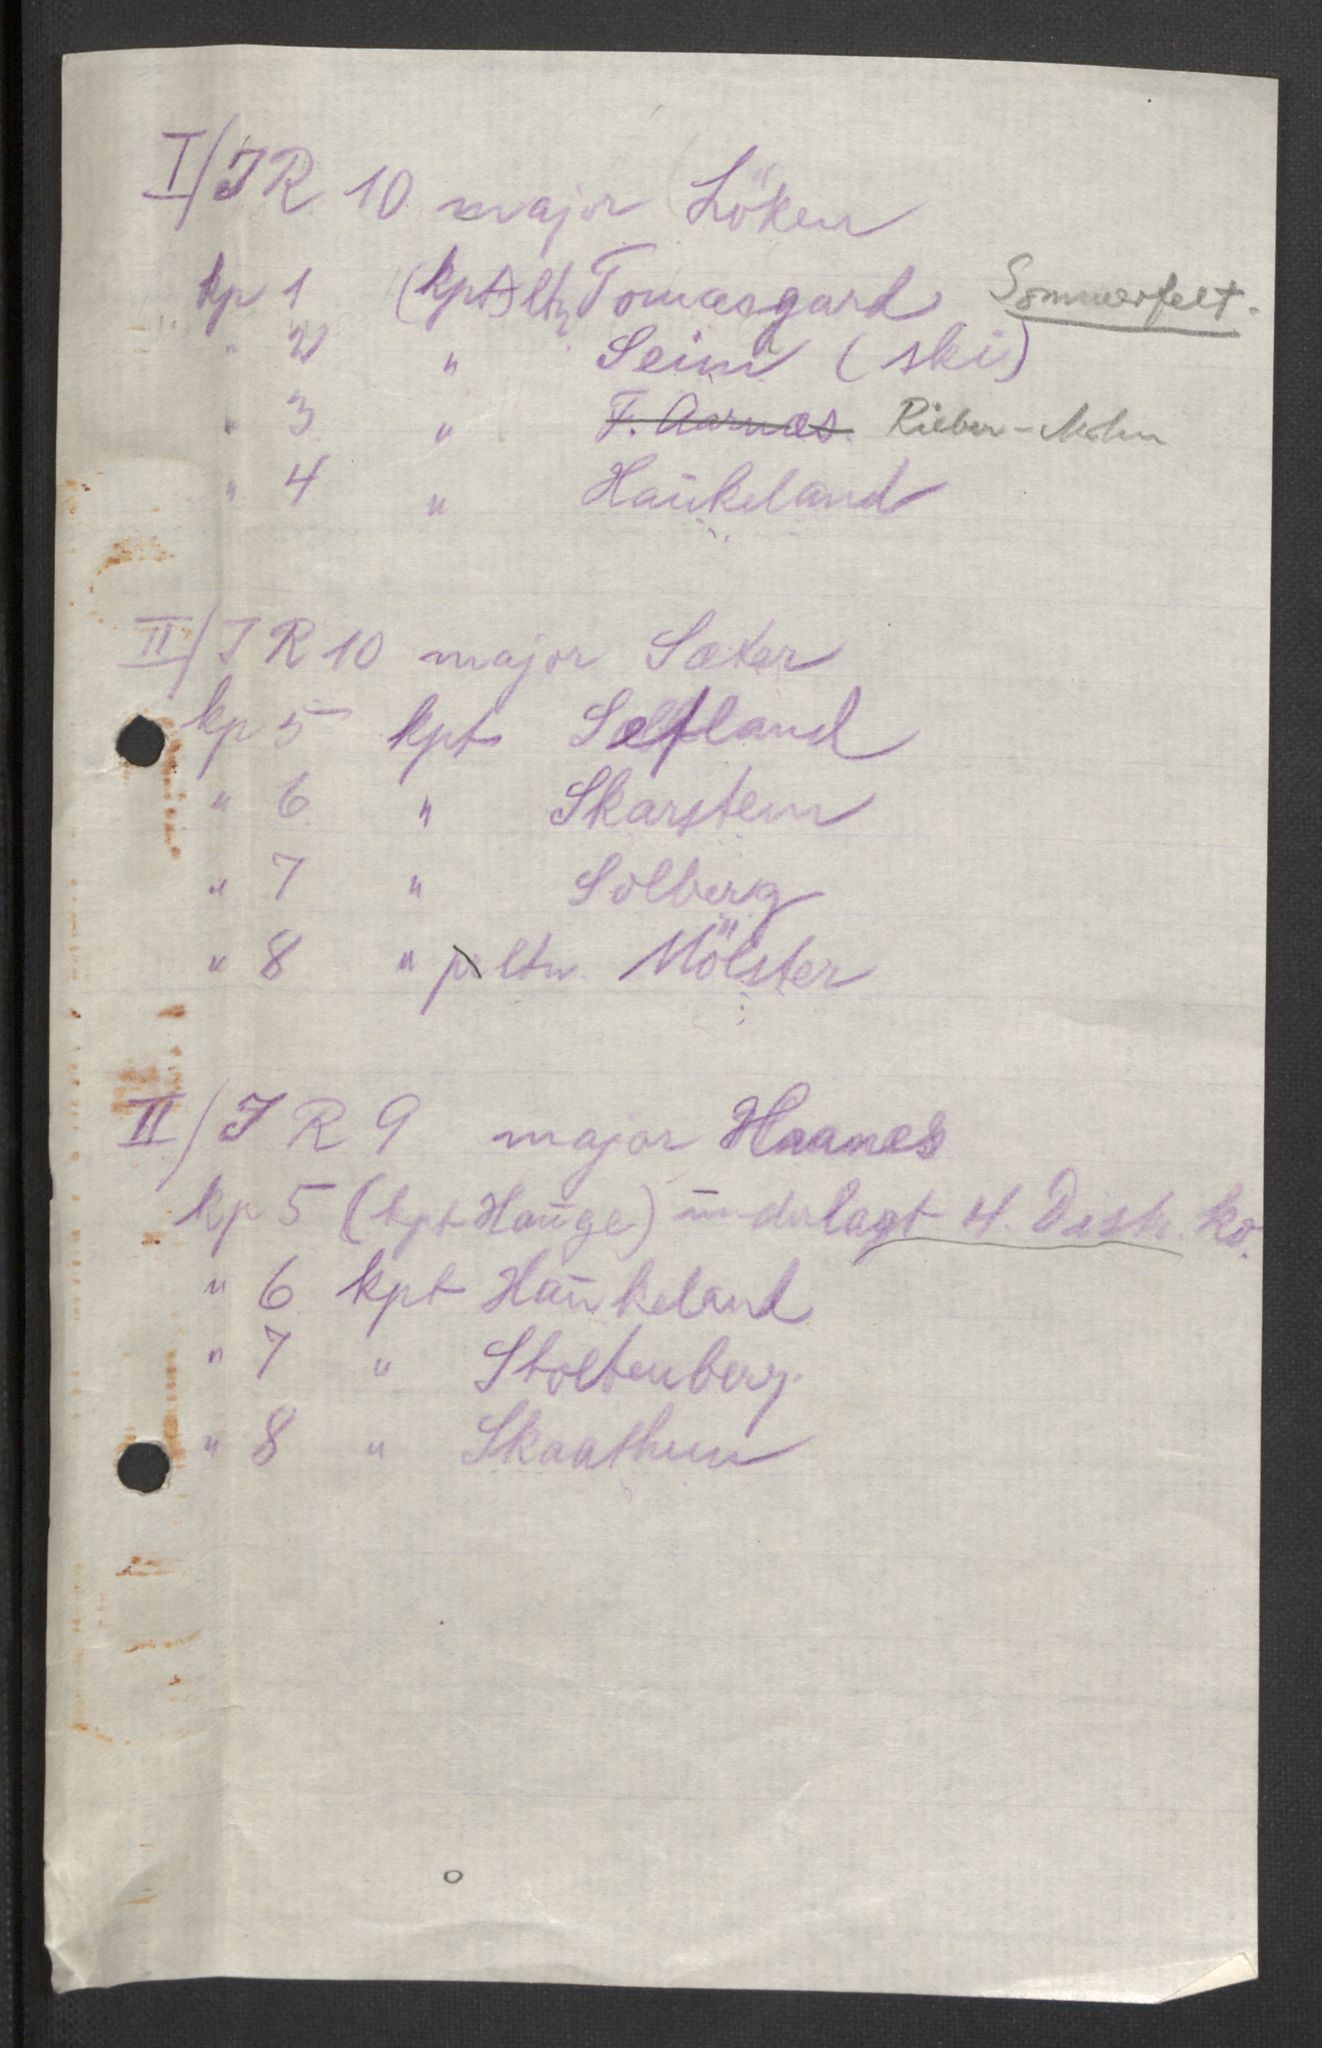 I/IR 10 major Löken
kp 1 (kpt) ltn Tomasgard Sommerfelt.
" 2 " Seim (ski)
" 3 " F. Aarnæs. Rieber-Mohn
" 4 " Haukeland
II/IR 10 major Sæter
kp 5 kpt Sælland
" 6 " Skarstein
" 7 " Solberg
" 8 " p ltn. Mölster
II/IR 9 major Haanes
kp 5 (kpt Hauge) underlagt 4. Distr. ko.
" 6 kpt Haukeland
" 7 " Stoltenberg.
" 8 " Skaathun